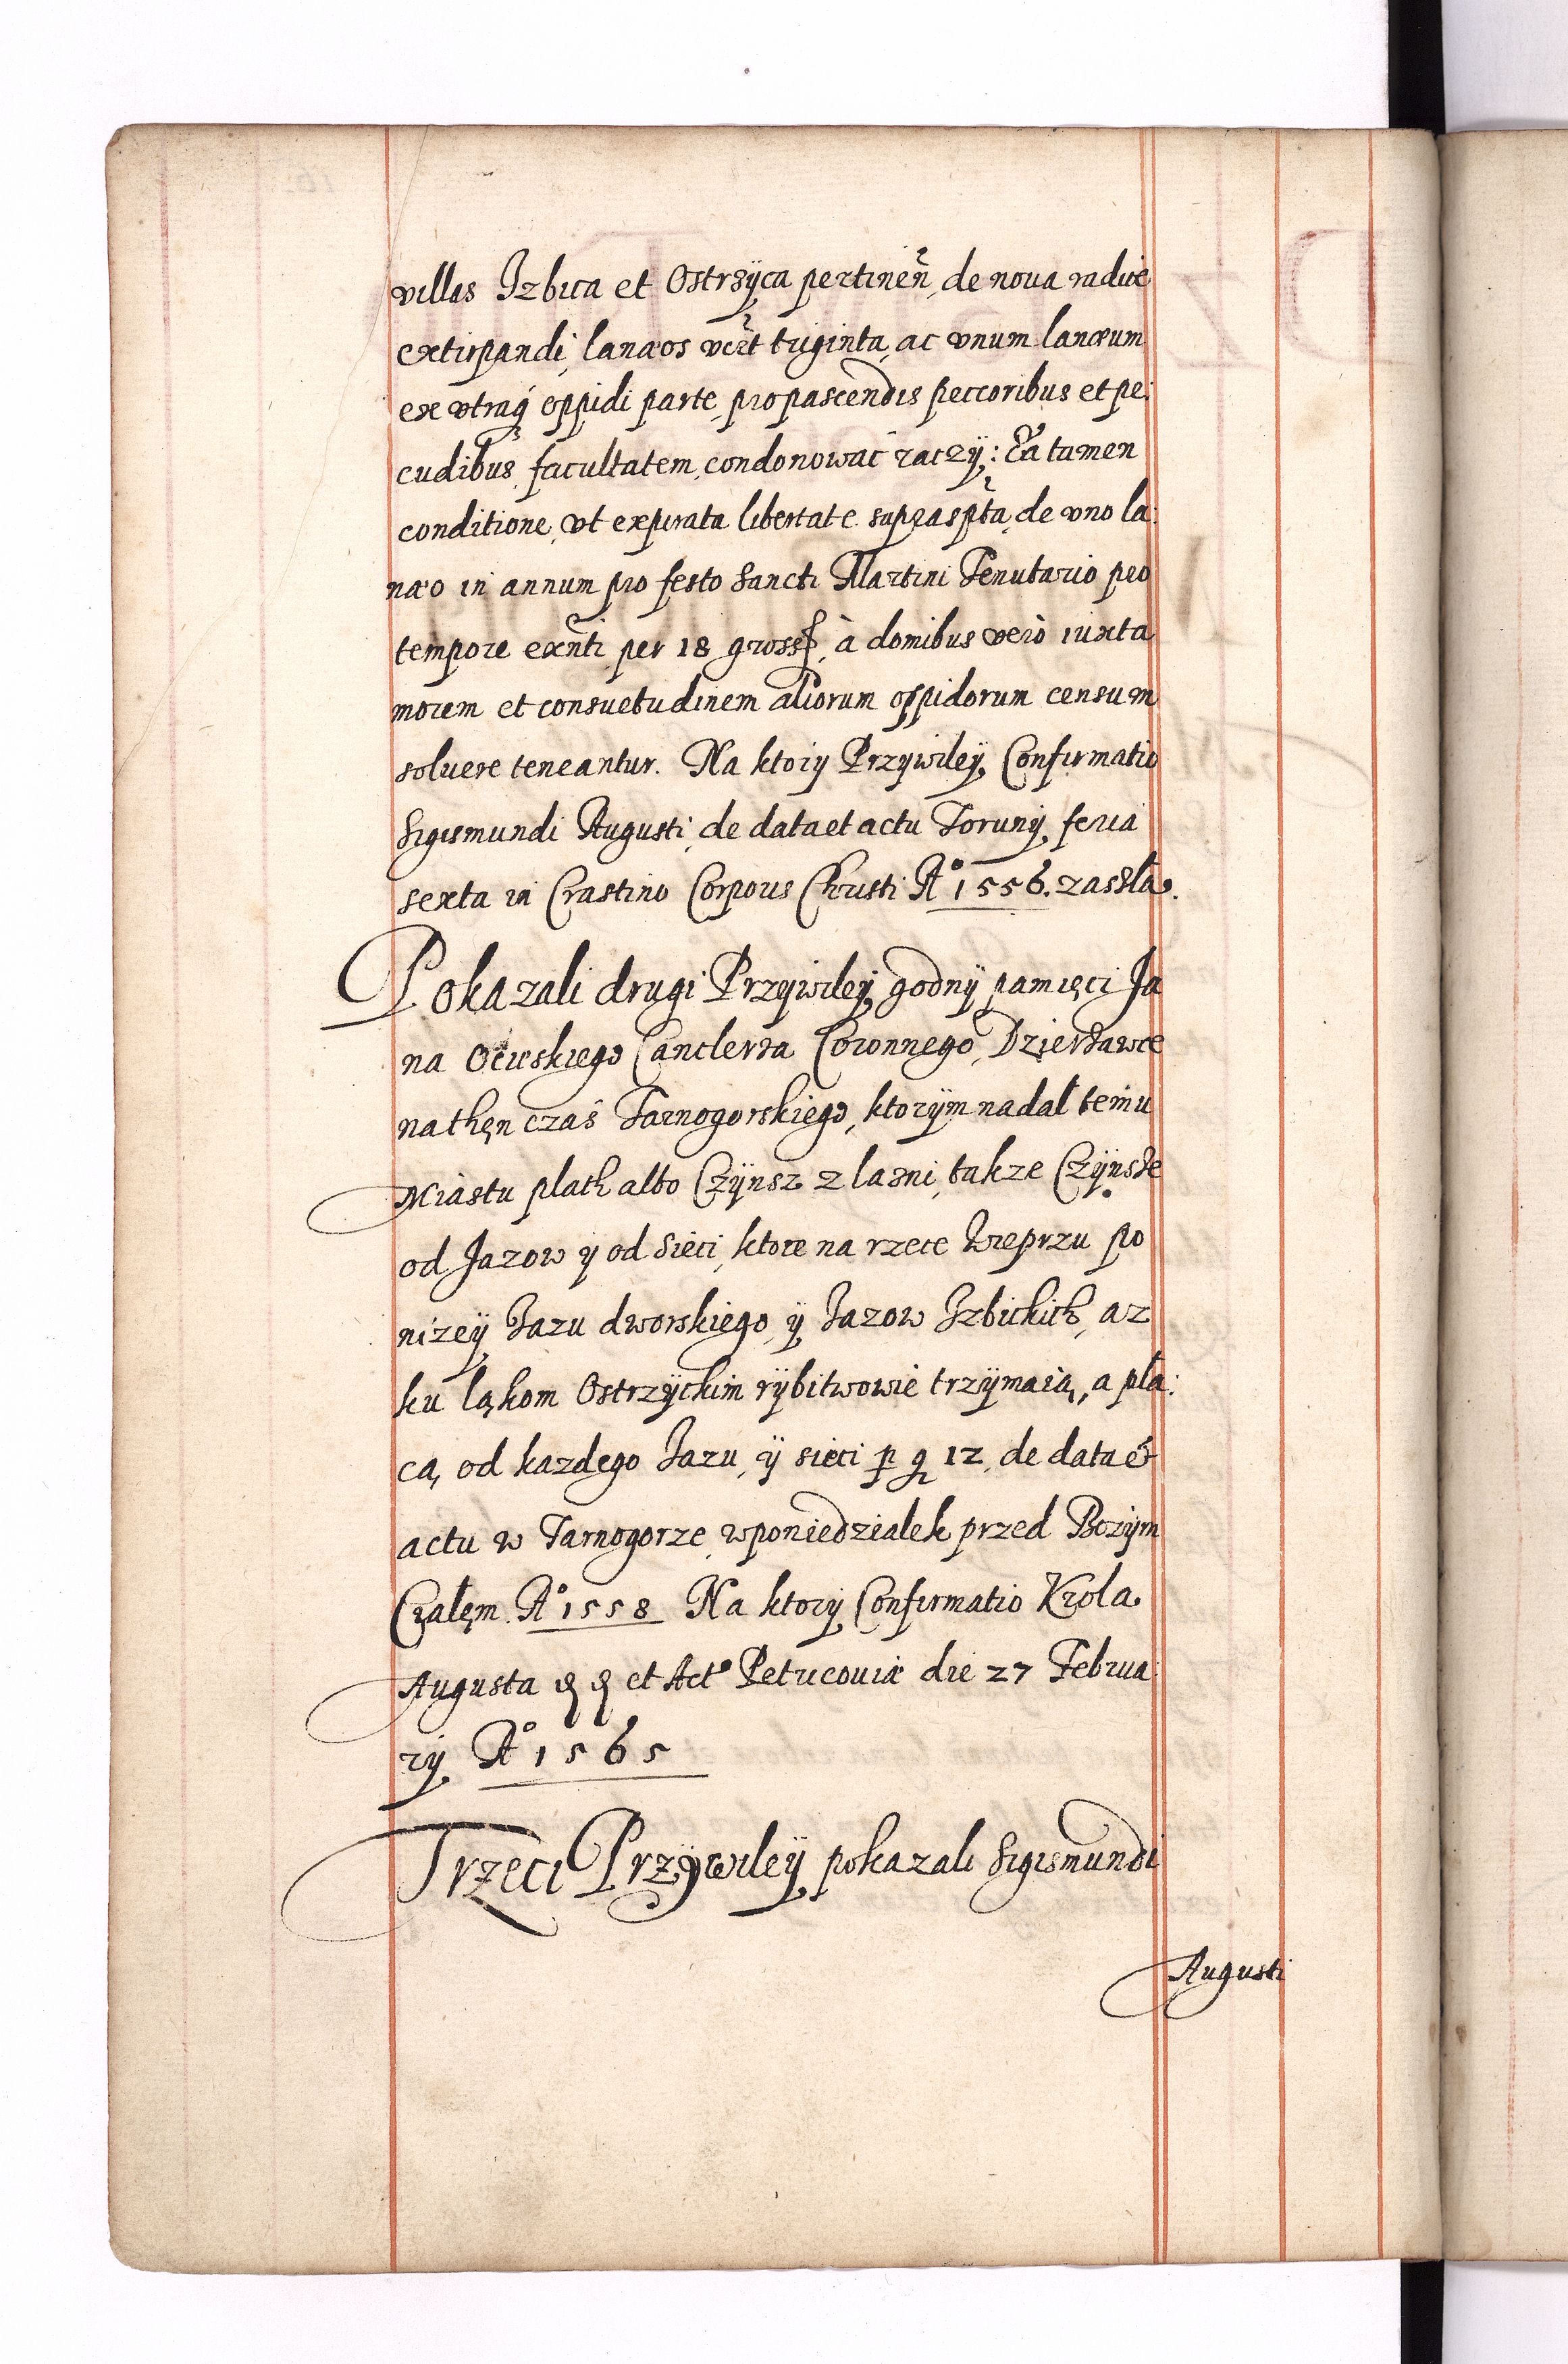 villas Izbica et Ostrzÿca pertineñ, de noua radice
extirpandi, lanæos vert̃ triginta, ac vnum lanæum
ex vtraq́ oppidi parte, pro pascendis peccoribus et pe:
cudibus facultatem, condonować raczÿ: Ea tamen
conditione, vt expirata libertate supraspt̃a, de vno la:
næo in annum pro festo Sancti Martini Tenutario pro
tempore exñti per 18 gross, à domibus verò iuxta
morem et consuetudinem aliorum oppidorum censum
soluere teneantur. Na ktorÿ Przywileÿ, Confirmatio
Sigismundi Augusti, de data et actu Torunÿ, feria
sexta in Crastino Corporis Christi A° 1556. zaszła.
Pokazali drugi Przÿwileÿ, godnÿ pamięci Ja
na Ocieskiego Canclerza Coronnego, Dzierżawce
nathęn czas Tarnogorskiego, ktorÿm nadał temu
Miastu płath albo Czÿnsz z łazni, takze Czÿnsze
od Jazow ÿ od Sieci, ktore na rzece Wieprzu po
nizeÿ Jazu dworskiego, ÿ Jazow Izbickich, az
ku łąkom Ostrzÿckim rÿbitwowie trzÿmaią, a pła:
cą, od kazdego Jazu, ÿ sieci p g 12, de data et
actu w Tarnogorze, w poniedziałek przed Bozÿm
Czałęm. A° 1558 Na ktorÿ Confirmatio Krola
Augusta d d et Act° Petricouiæ die 27 Februa
rÿ A° 1565
Trzeci Przÿwileÿ pokazali Sigismundi
Augusti